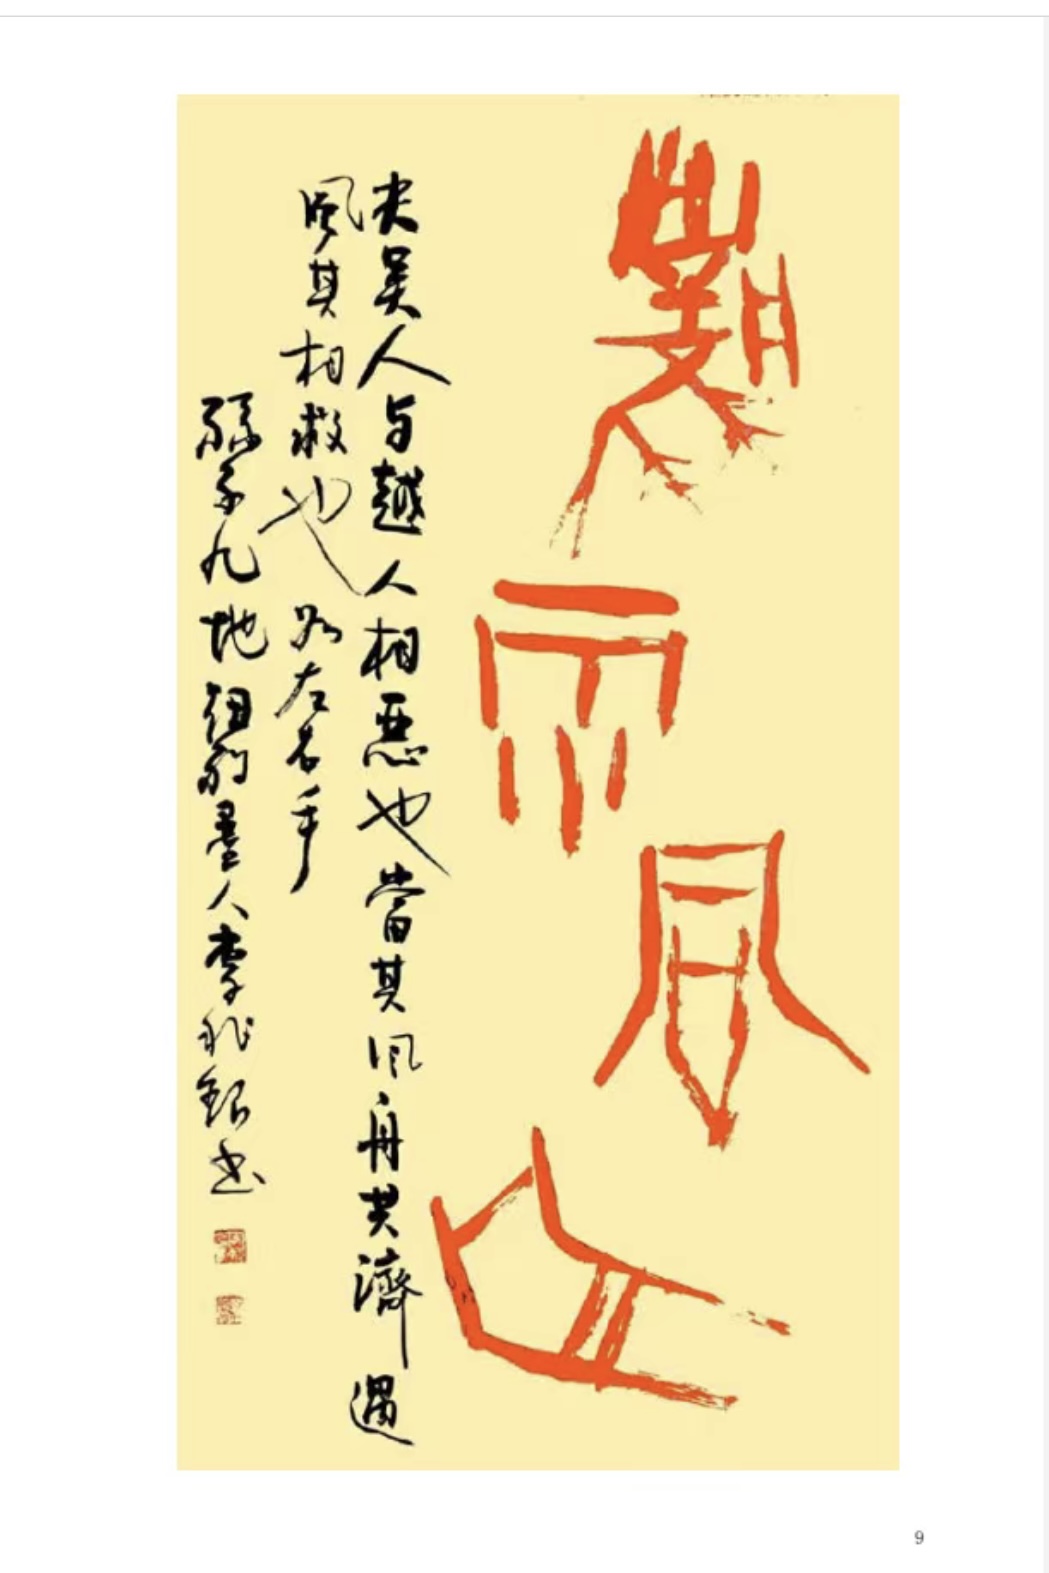 風雨同舟
夫吴人与越人相惡也當其同舟共濟遇
風其相救也如左右手
孫子九地墨人李銀书
9